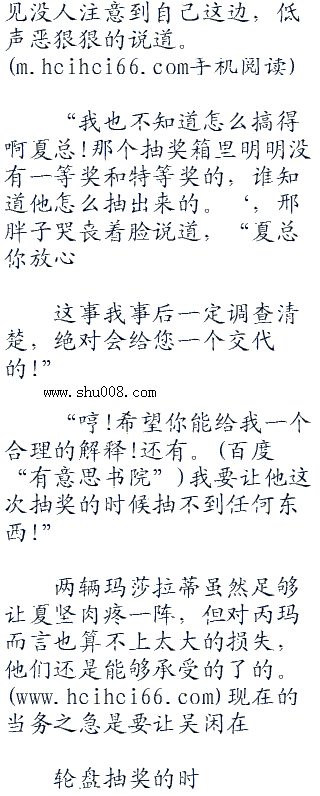 见没人注意到自己这边，低
声恶狠狠的说道。
(m.hcihci66.com手机阅读)
“我也不知道怎么搞得
啊夏总!那个抽奖箱里明明没
有一等奖和特等奖的，谁知
道他怎么抽出来的。‘，邢
胖子哭丧着脸说道，“夏总
你放心
这事我事后一定调查清
楚，绝对会给您一个交代
的!”
www.shu008.com
“哼!希望你能给我一个
合理的解释!还有。(百度
“有意思书院”)我要让他这
次抽奖的时候抽不到任何东
西!”
两辆玛莎拉蒂虽然足够
让夏坚肉疼一阵，但对丙玛
而言也算不上太大的损失，
他们还是能够承受的了的。
(www.hcihci66.com)现在的
当务之急是要让吴闲在
轮盘抽奖的时